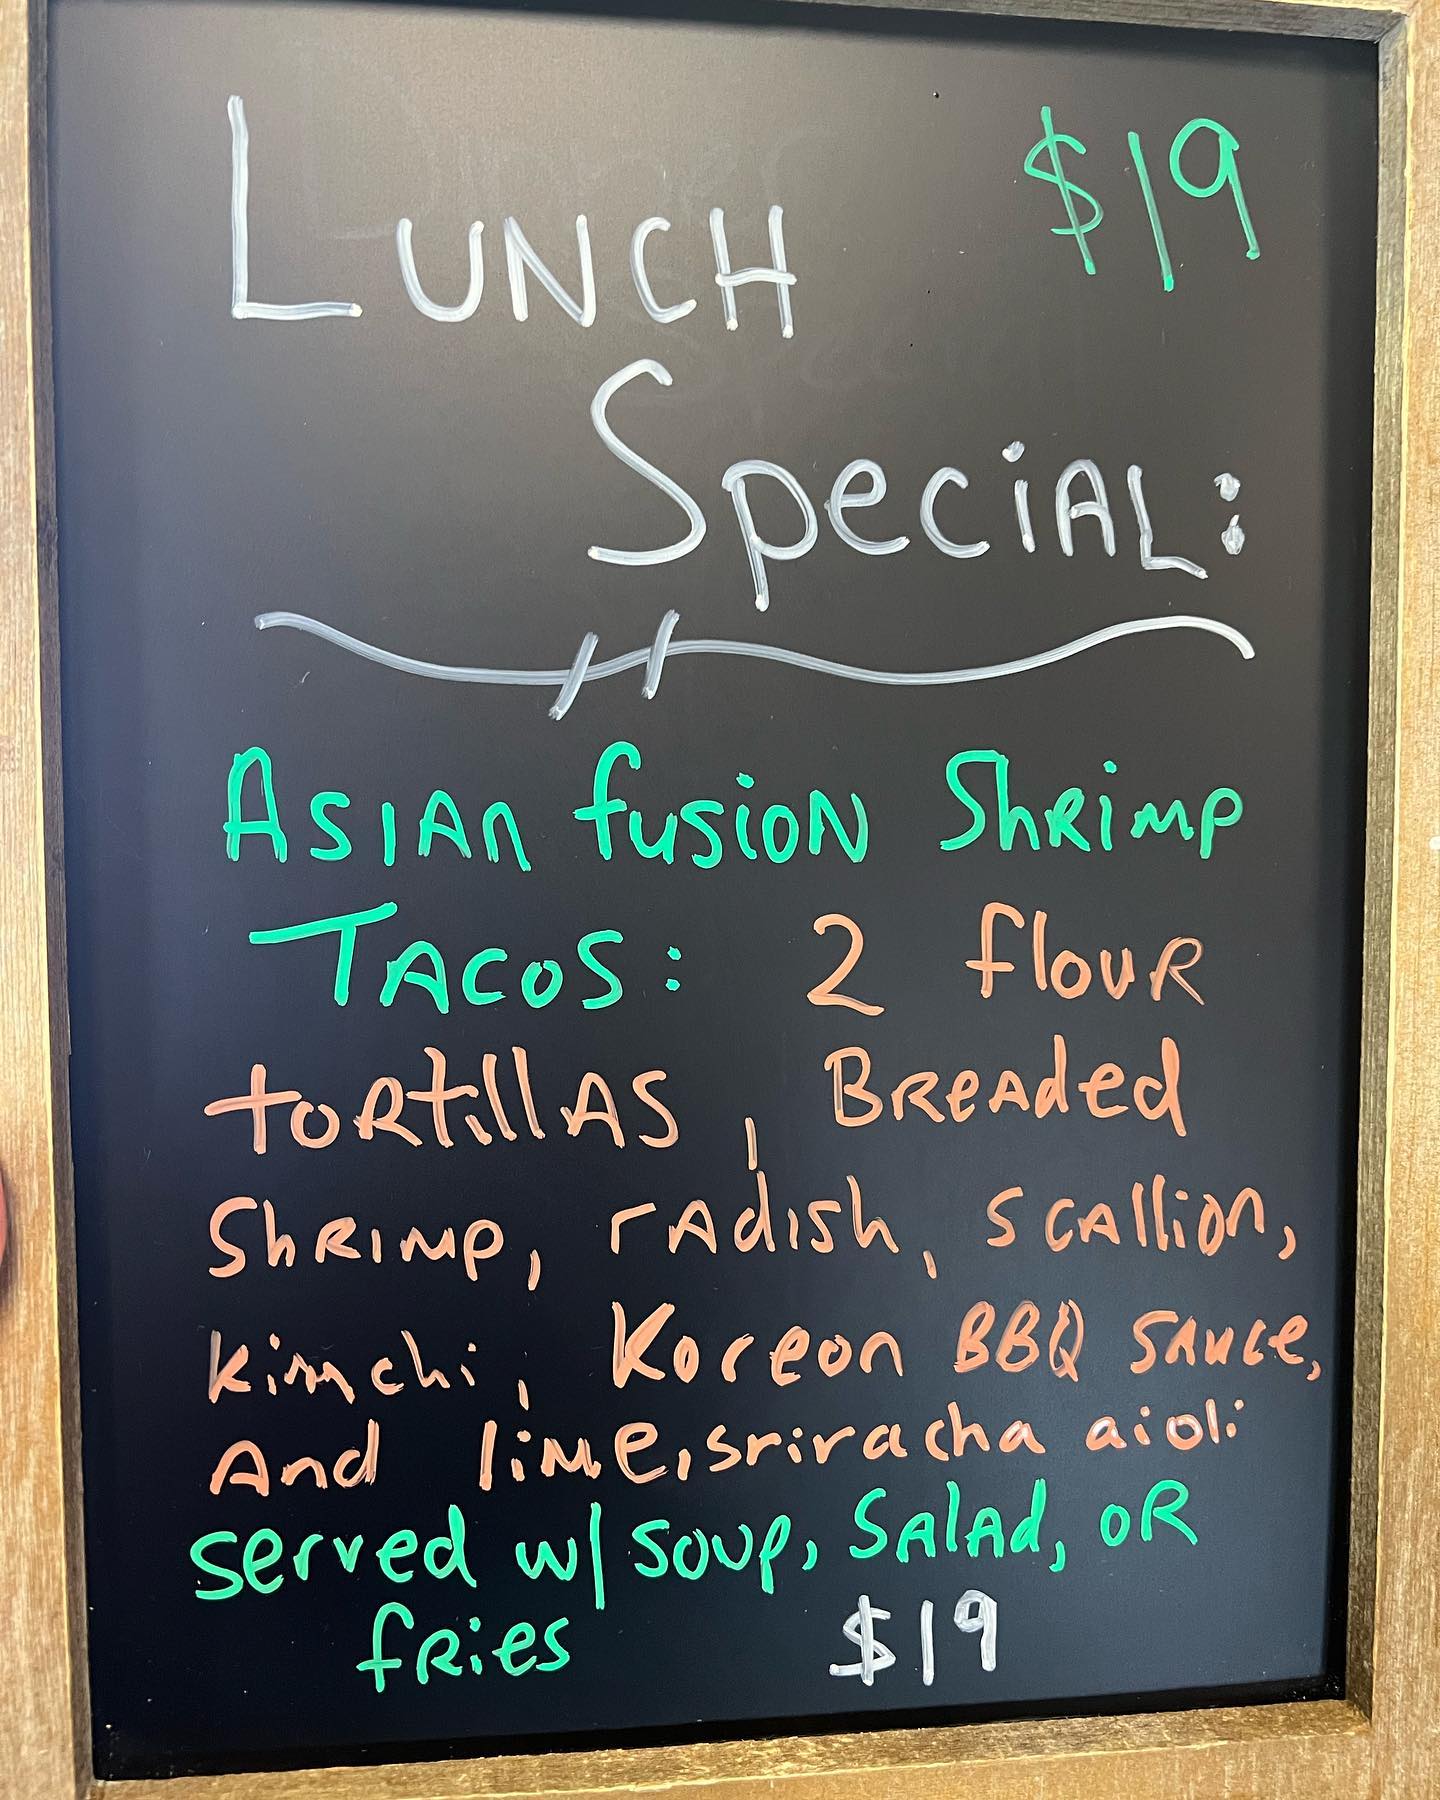 LUNCH $19
Special:
Asian fusion Shrimp
Tacos: 2 flour
tortillas, Breaded
Shrimp, radish, scallion,
kimchi, Koreon BBQ sauce,
And lime,sriracha aioli
served w/ soup, Salad, or
fries $19